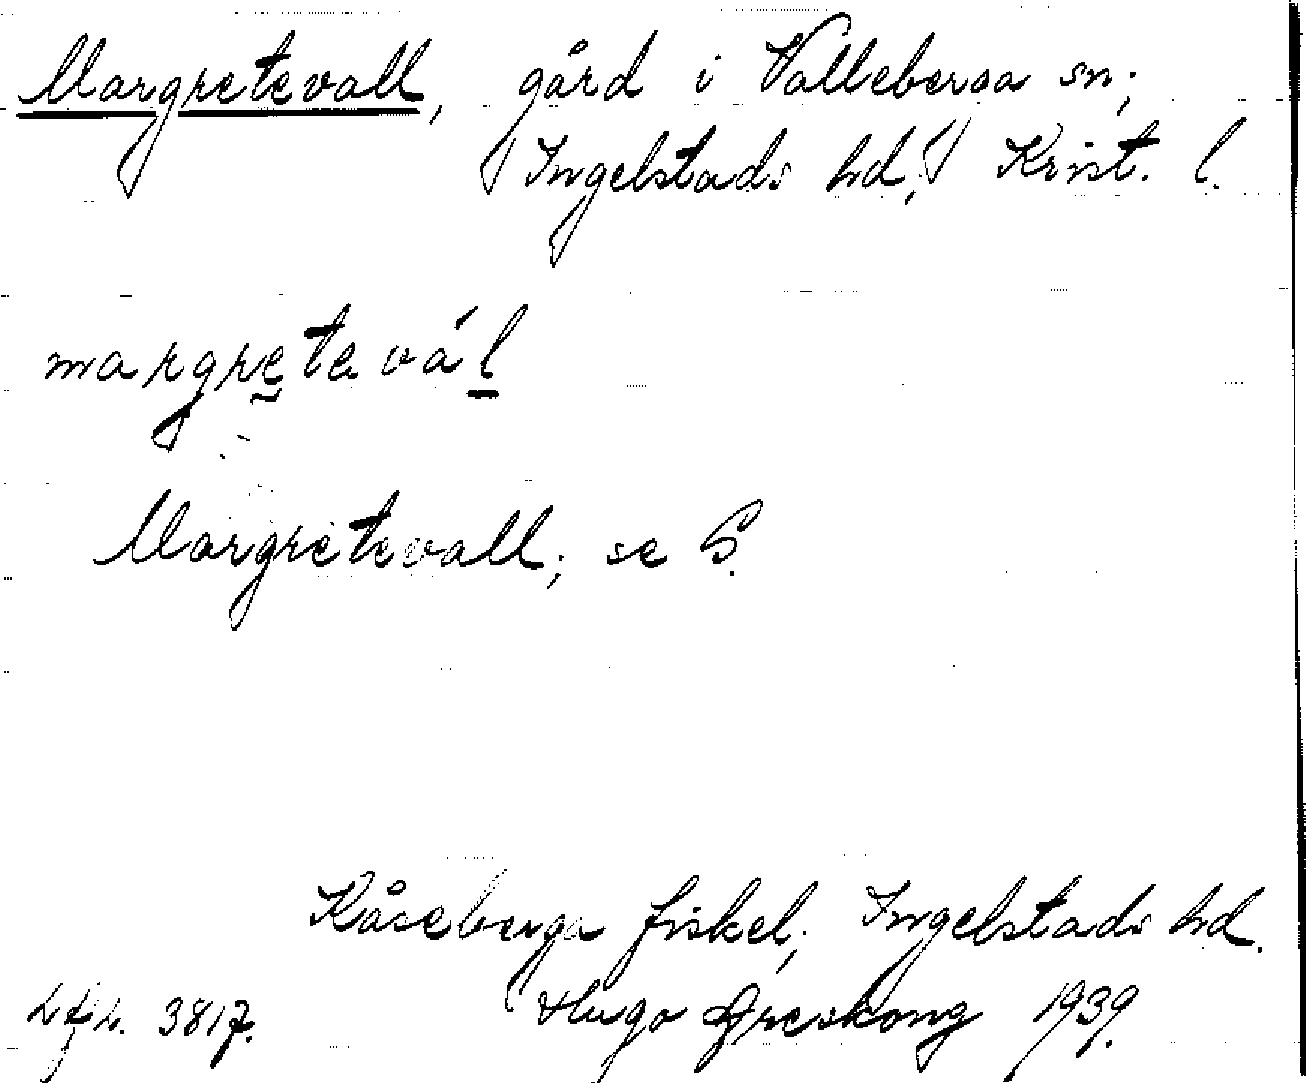 Margretevall, gård i Valleberga sn;
Ingelstads hd, Krist. l.
margrete vál
Margretevall; se S.
Kåseberga fiskel; Ingelstads hd.
3817. Hugo Areskoug 1939.